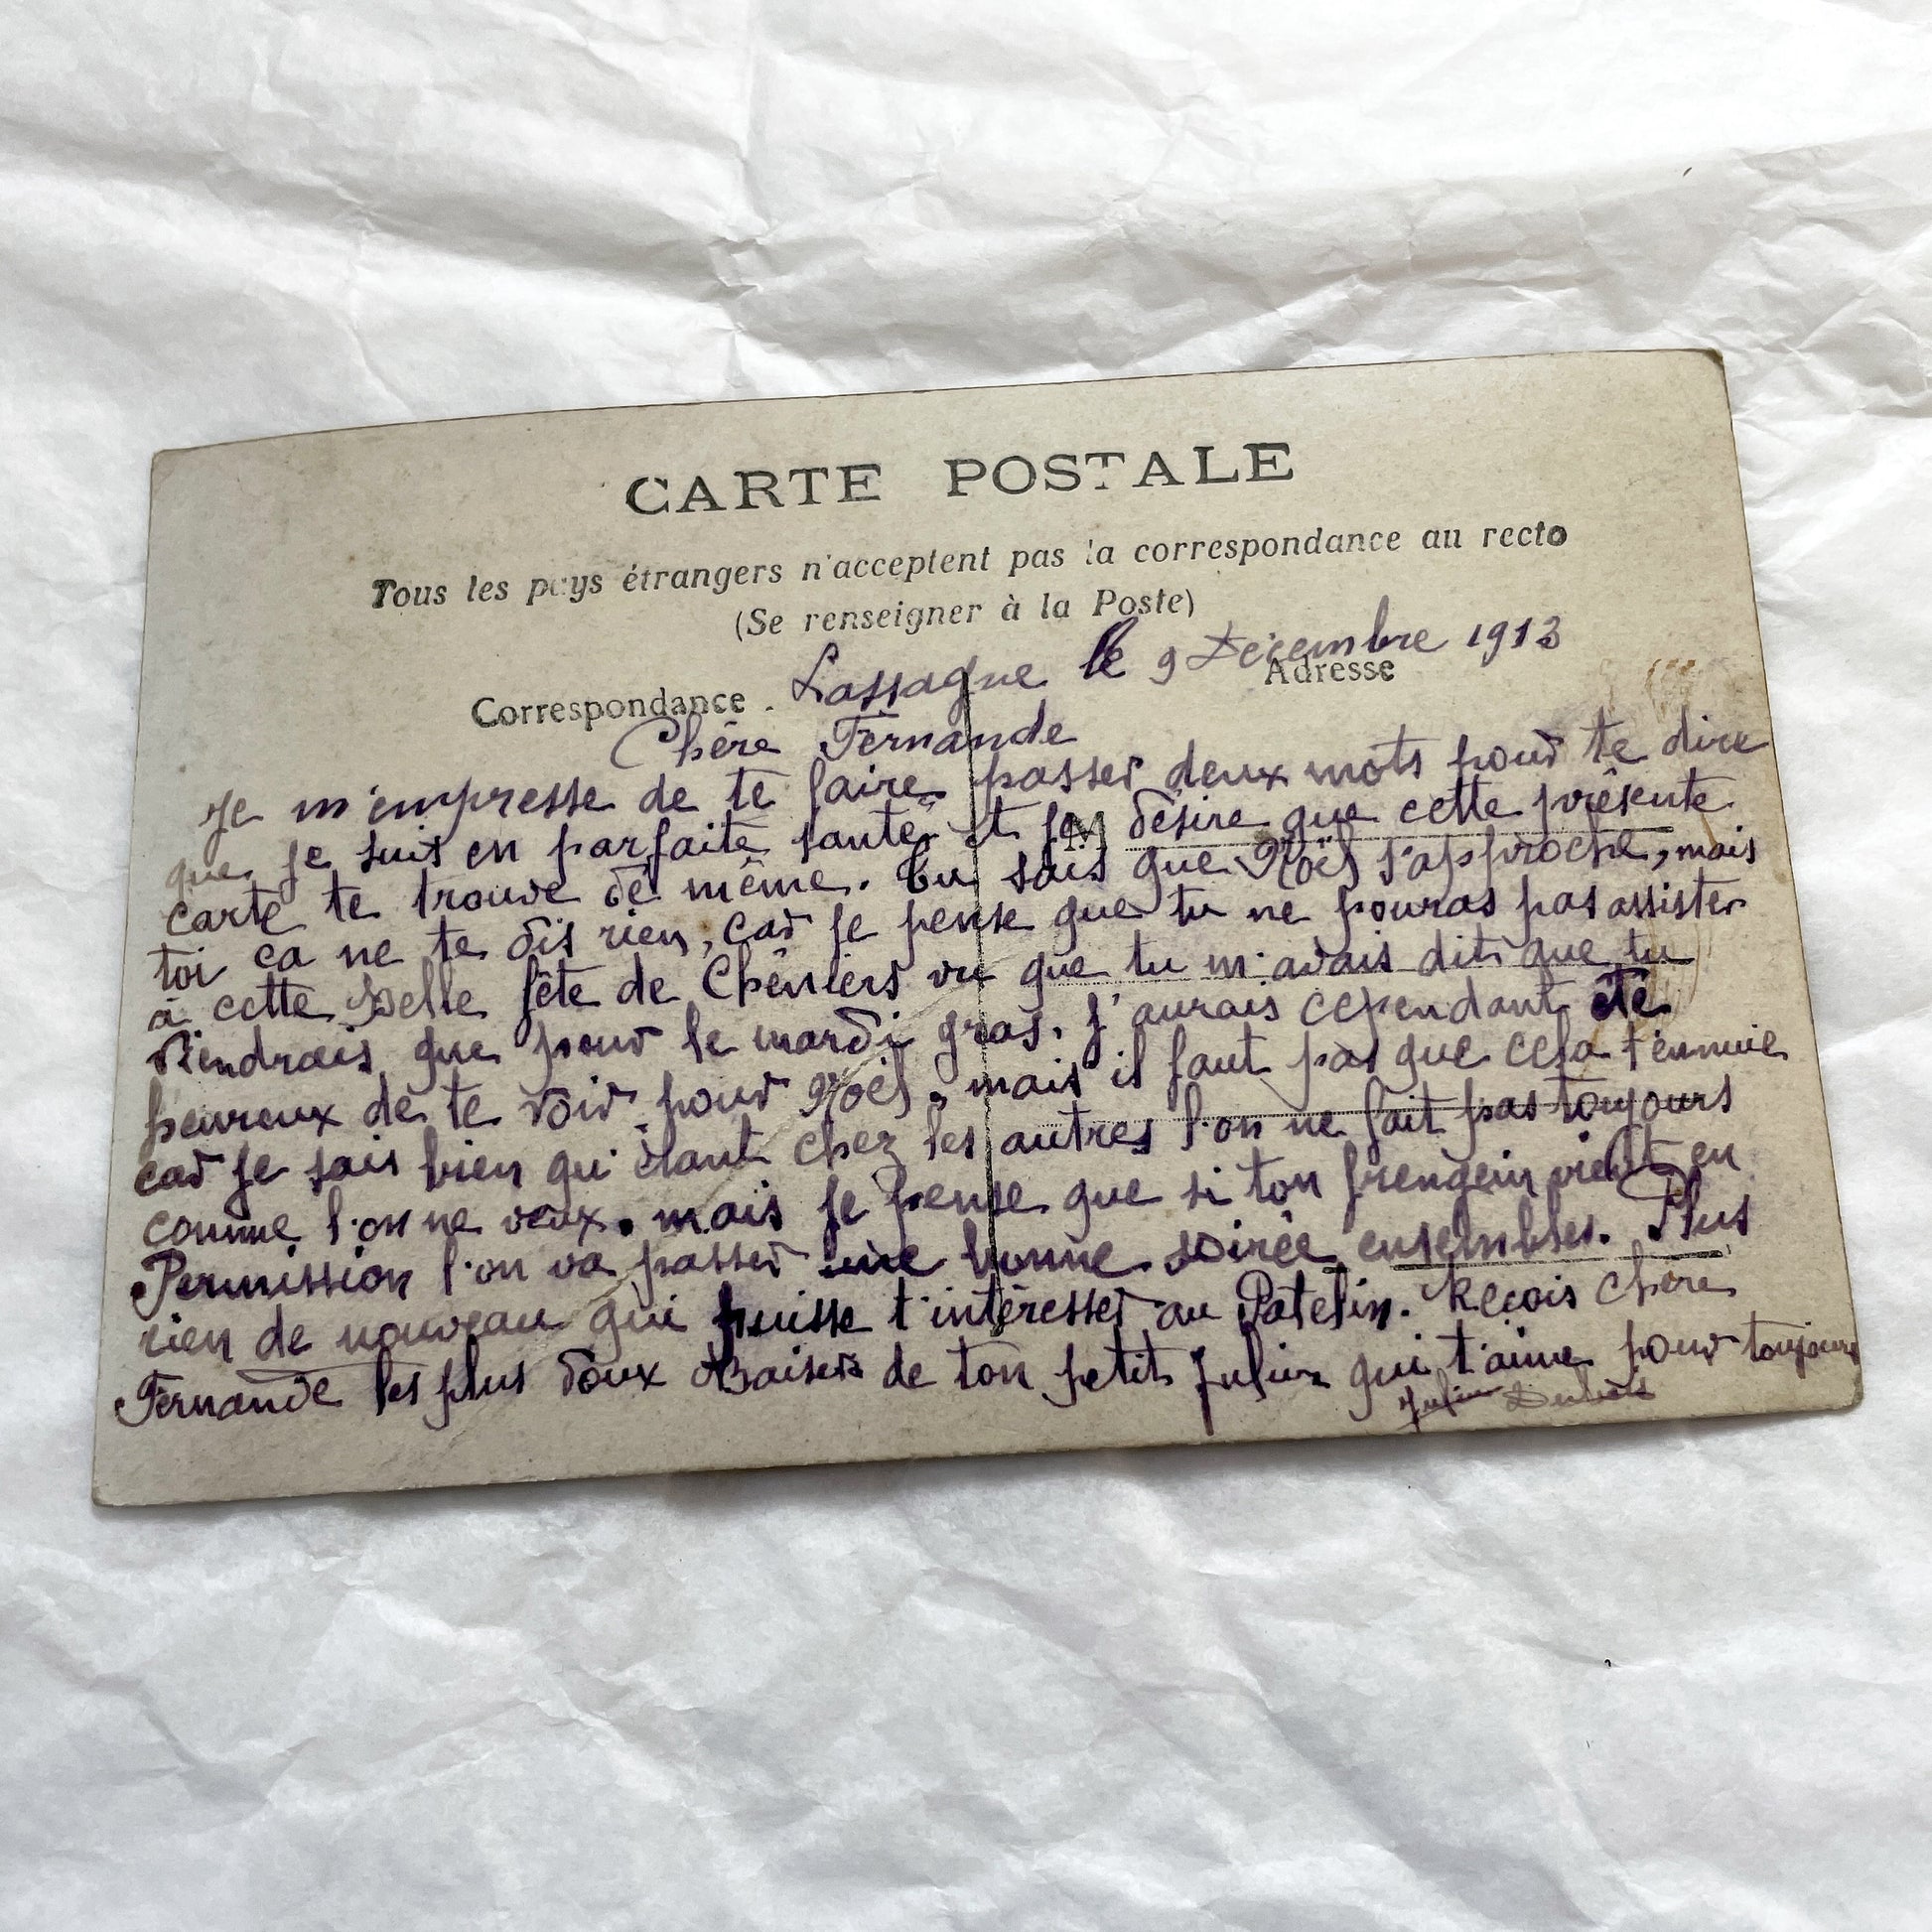 CARTE POSTALE
Tous les pays étrangers n'acceptent pas la correspondance au recto
(Se renseigner à la Poste)
Correspondance Adresse
Lassagne le 9 Décembre 1913
Chère Fernande
Je m'empresse de te faire passer deux mots pour te dire
que je suis en parfaite santé et je désire que cette présente
M
carte te trouve de même. Tu sais que Noël s'approche, mais
toi ca ne te dis rien, car je pense que tu ne pouras pas assister
à cette Belle fête de Chéniers vu que tu m'avais dit que tu
viendrais que pour le mardi gras. j'aurais cependant été
heureux de te voir pour Noël, mais il faut pas que cela t'ennuie
car je sais bien qu'étant chez les autres l'on ne fait pas toujours
comme l'on ne veux. mais je pense que si ton frengein vient en
Permission l'on va passer une bonne soirée ensembles. Plus
rien de nouveau qui puisse t'intéresser au Patelin. Reçois chère
Fernande les plus doux Baisers de ton petit Julien qui t'aime pour toujours
Julien